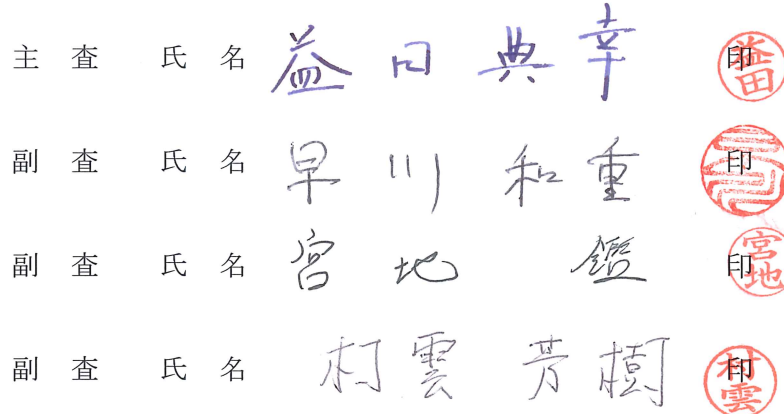 主査 氏名 益田典幸 印 益田
副査 氏名 早川和重 印
副査 氏名 宮地鑑 印 宮地
副査 氏名 村雲芳樹 印 村雲